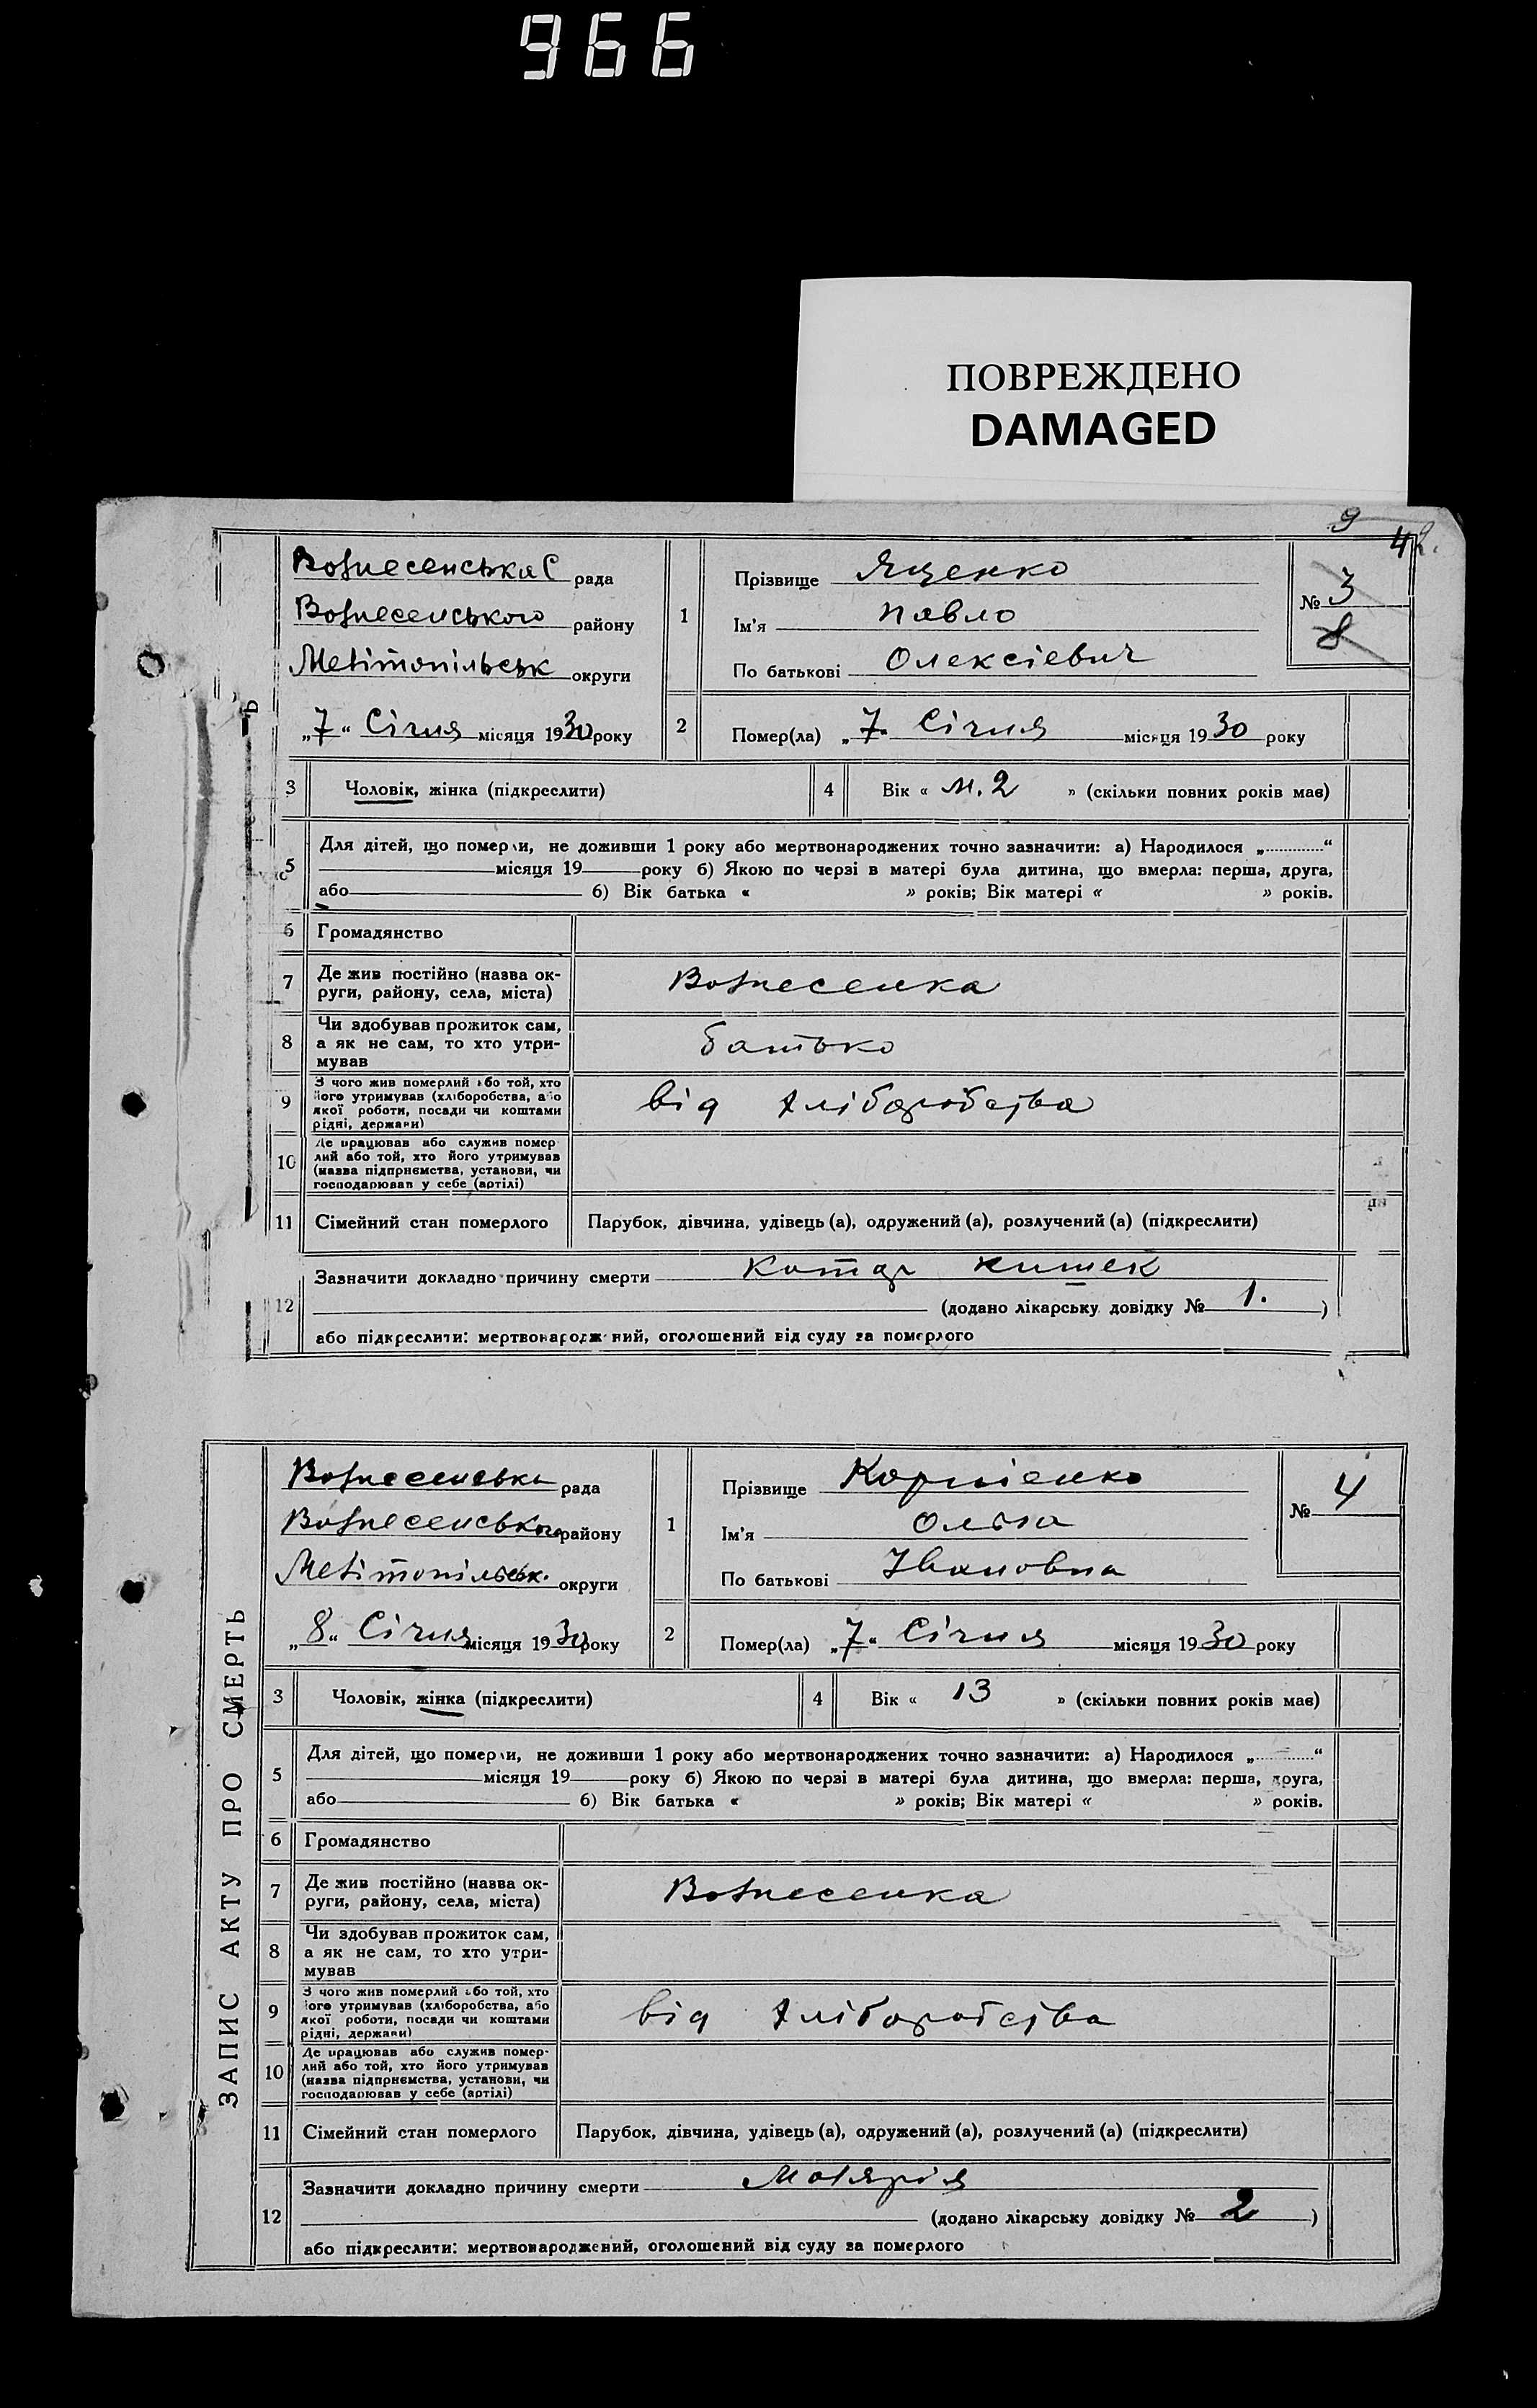 966
ПОВРЕЖДЕНО
DAMAGED
9
42.
Вознесенська С рада
Вознесенського району
Мелітопільськ округи
„7“ Січня місяця 1930 року
1
Прізвище Ященко
Ім'я Павло
По батькові Олексієвич
№ 3
8
2
Помер(ла) „7. Січня місяця 1930 року
3 Чоловік, жінка (підкреслити)
4 Вік « м. 2 » (скільки повних років має)
5 Для дітей, що померли, не доживши 1 року або мертвонароджених точно зазначити: а) Народилося „ “
місяця 19 року б) Якою по черзі в матері була дитина, що вмерла: перша, друга,
або б) Вік батька « » років; Вік матері « » років.
6 Громадянство
7 Де жив постійно (назва ок-
руги, району, села, міста)
Вознесенка
8 Чи здобував прожиток сам,
а як не сам, то хто утри-
мував
батько
9 З чого жив померлий або той, хто
його утримував (хліборобства, або
якої роботи, посади чи коштами
рідні, держави)
від хліборобства
10 Де працював або служив помер-
лий або той, хто його утримував
(назва підприємства, установи, чи
господарював у себе (артілі)
11 Сімейний стан померлого Парубок, дівчина, удівець (а), одружений (а), розлучений (а) (підкреслити)
12 Зазначити докладно причину смерти Катар кишек
(додано лікарську довідку № 1. )
або підкреслити: мертвонароджений, оголошений від суду за померлого
ЗАПИС АКТУ ПРО СМЕРТЬ
Вознесенська рада
Вознесенського району
Мелітопільськ. округи
„8“ Січня місяця 1930 року
1
Прізвище Корнієнко
Ім'я Ольга
По батькові Івановна
№ 4
2
Помер(ла) „7“ Січня місяця 1930 року
3 Чоловік, жінка (підкреслити)
4 Вік « 13 » (скільки повних років має)
5 Для дітей, що померли, не доживши 1 року або мертвонароджених точно зазначити: а) Народилося „ “
місяця 19 року б) Якою по черзі в матері була дитина, що вмерла: перша, друга,
або б) Вік батька « » років; Вік матері « » років.
6 Громадянство
7 Де жив постійно (назва ок-
руги, району, села, міста)
Вознесенка
8 Чи здобував прожиток сам,
а як не сам, то хто утри-
мував
9 З чого жив померлий або той, хто
його утримував (хліборобства, або
якої роботи, посади чи коштами
рідні, держави)
від хліборобства
10 Де працював або служив помер-
лий або той, хто його утримував
(назва підприємства, установи, чи
господарював у себе (артілі)
11 Сімейний стан померлого Парубок, дівчина, удівець (а), одружений (а), розлучений (а) (підкреслити)
12 Зазначити докладно причину смерти Малярія
(додано лікарську довідку № 2 )
або підкреслити: мертвонароджений, оголошений від суду за померлого